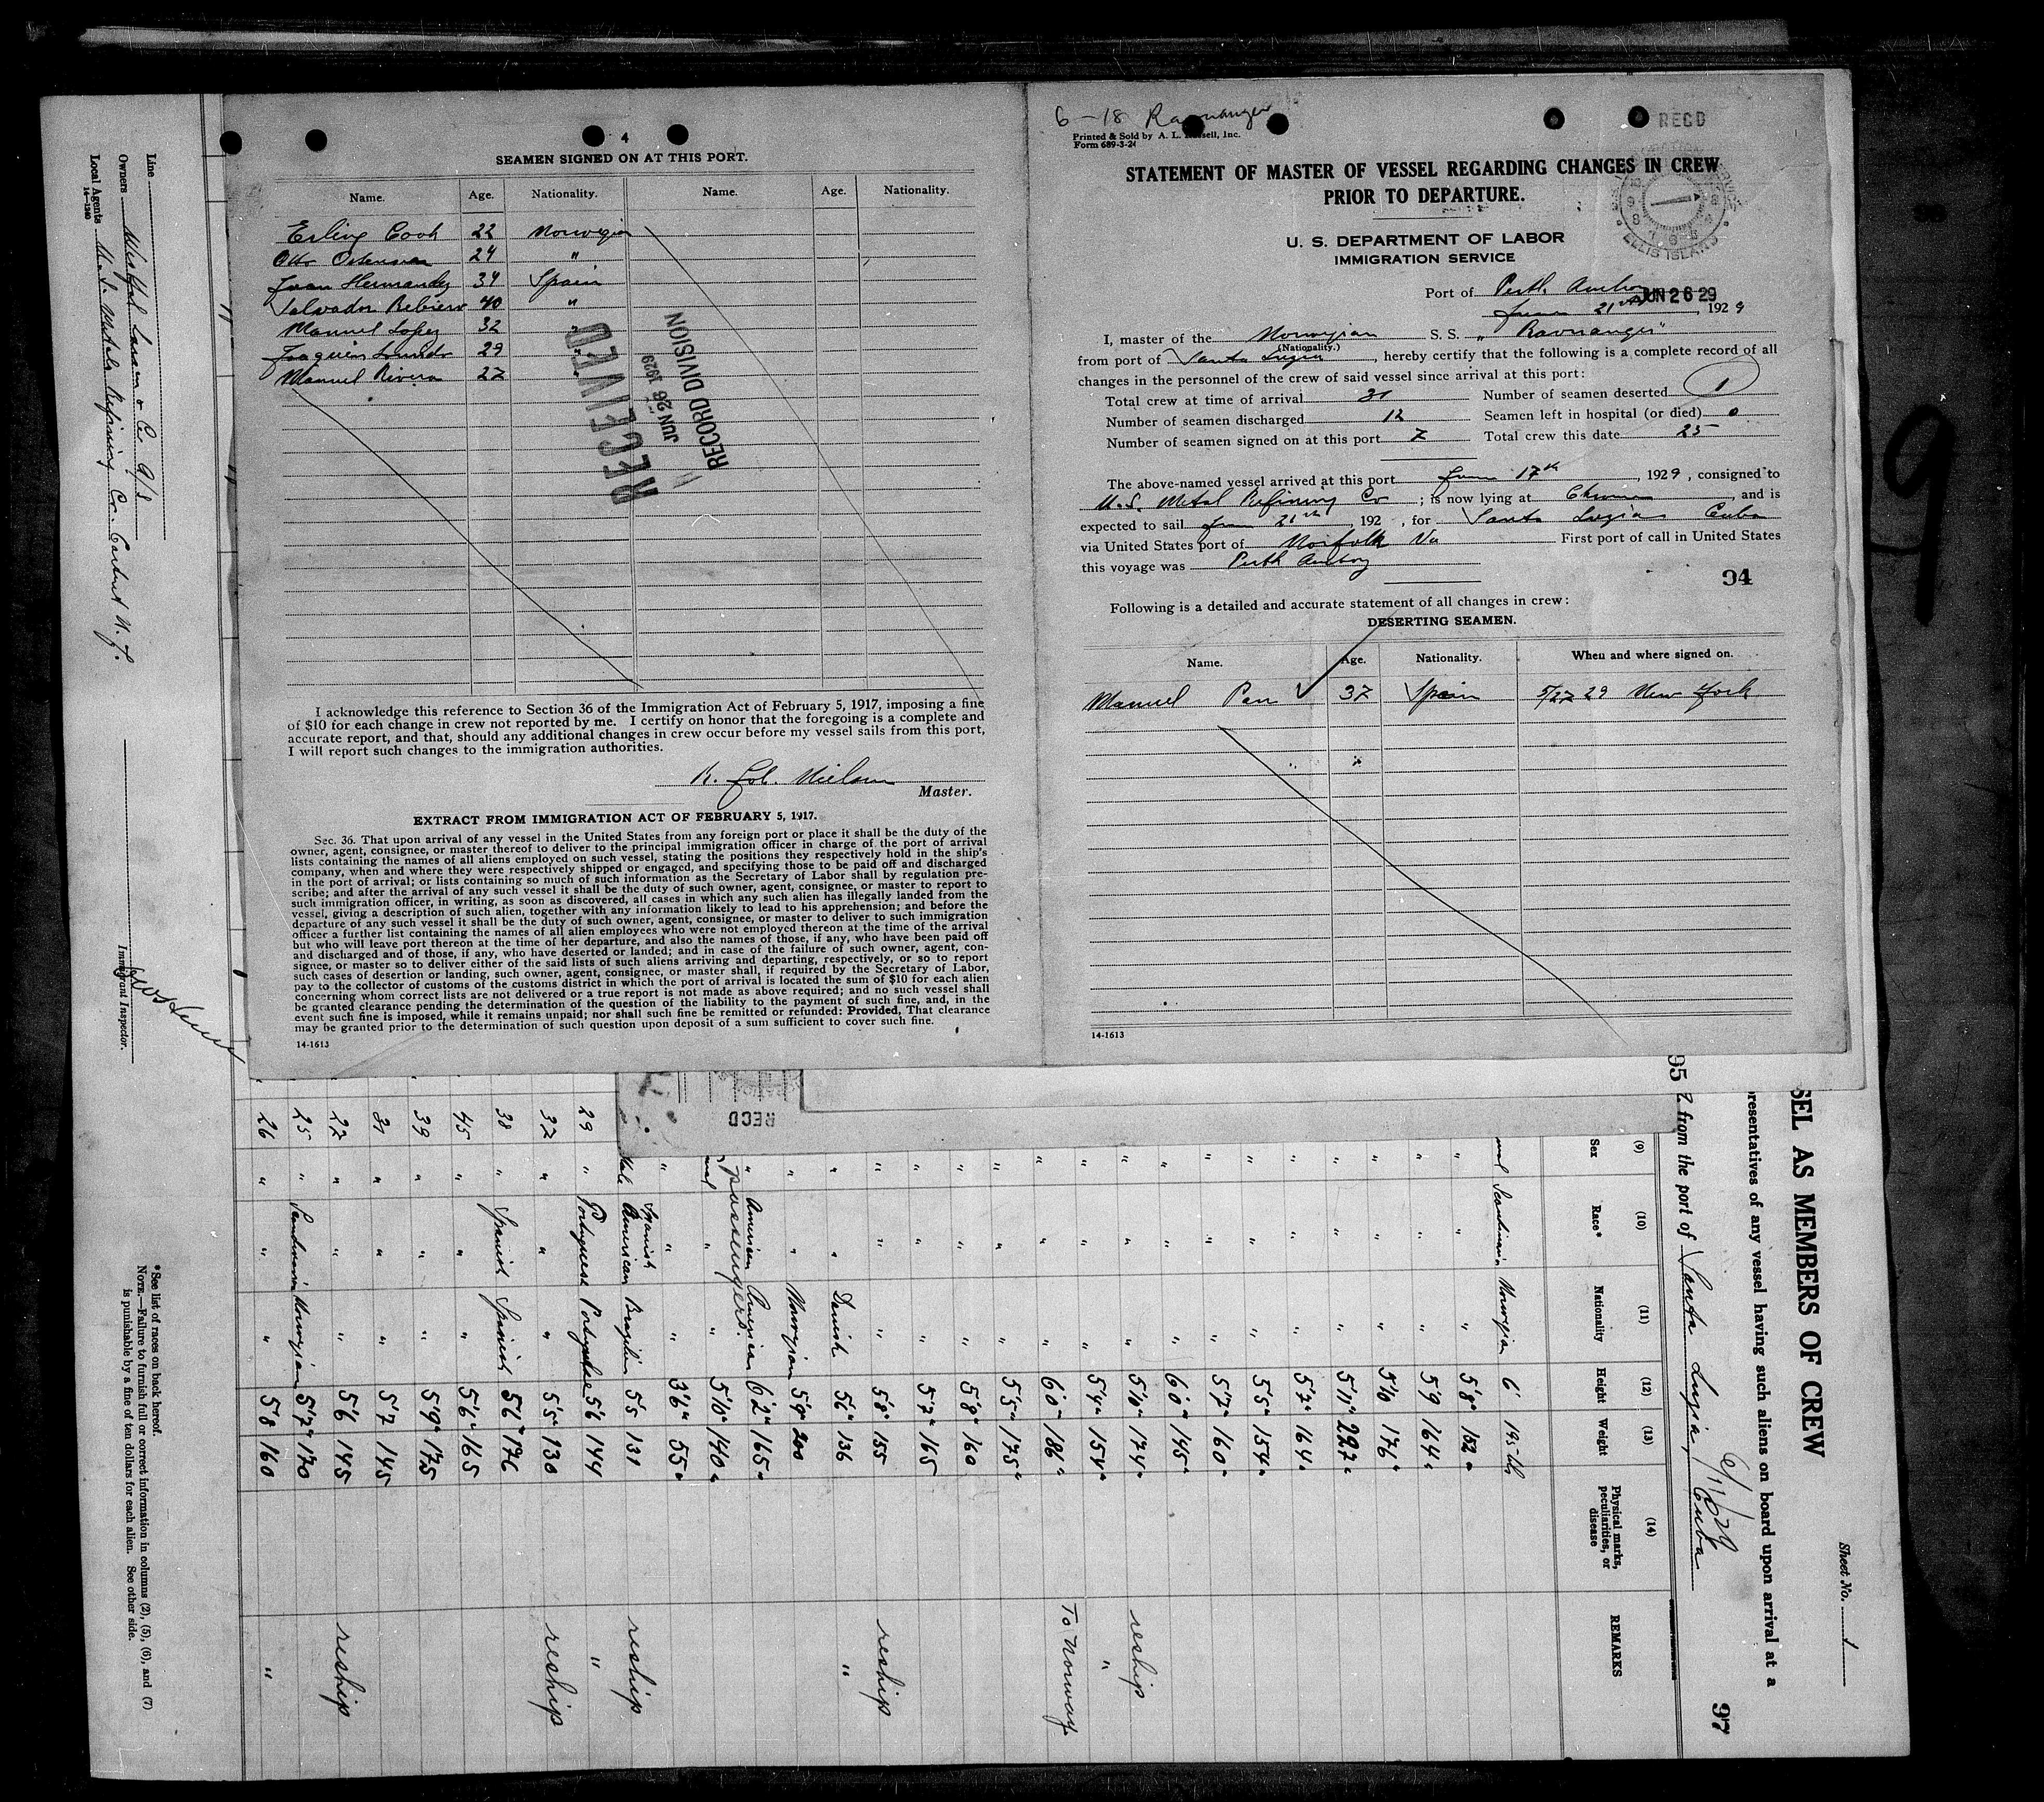 4
SEAMEN SIGNED ON AT THIS PORT.
Name. Age. Nationality. Name. Age. Nationality.
Erling Cook 22 Norwegian
Otto 24 "
Juan Hermandez 34 Spain
Salvador Rebiero 40 "
Manuel Lopez 32 "
Joaquin 29 "
Manuel Rivera 27 "
RECEIVED
JUN 26 1929
RECORD DIVISION
I acknowledge this reference to Section 36 of the Immigration Act of February 5, 1917, imposing a fine
of $10 for each change in crew not reported by me. I certify on honor that the foregoing is a complete and
accurate report, and that, should any additional changes in crew occur before my vessel sails from this port,
I will report such changes to the immigration authorities.
Master.
EXTRACT FROM IMMIGRATION ACT OF FEBRUARY 5, 1917.
Sec. 36. That upon arrival of any vessel in the United States from any foreign port or place it shall be the duty of the
owner, agent, consignee, or master thereof to deliver to the principal immigration officer in charge of the port of arrival
lists containing the names of all aliens employed on such vessel, stating the positions they respectively hold in the ship's
company, when and where they were respectively shipped or engaged, and specifying those to be paid off and discharged
in the port of arrival; or lists containing so much of such information as the Secretary of Labor shall by regulation pre-
scribe; and after the arrival of any such vessel it shall be the duty of such owner, agent, consignee, or master to report to
such immigration officer, in writing, as soon as discovered, all cases in which any such alien has illegally landed from the
vessel, giving a description of such alien, together with any information likely to lead to his apprehension; and before the
departure of any such vessel it shall be the duty of such owner, agent, consignee, or master to deliver to such immigration
officer a further list containing the names of all alien employees who were not employed thereon at the time of the arrival
but who will leave port thereon at the time of her departure, and also the names of those, if any, who have been paid off
and discharged and of those, if any, who have deserted or landed; and in case of the failure of such owner, agent, con-
signee, or master so to deliver either of the said lists of such aliens arriving and departing, respectively, or so to report
such cases of desertion or landing, such owner, agent, consignee, or master shall, if required by the Secretary of Labor,
pay to the collector of customs of the customs district in which the port of arrival is located the sum of $10 for each alien
concerning whom correct lists are not delivered or a true report is not made as above required; and no such vessel shall
be granted clearance pending the determination of the question of the liability to the payment of such fine, and, in the
event such fine is imposed, while it remains unpaid; nor shall such fine be remitted or refunded: Provided, That clearance
may be granted prior to the determination of such question upon deposit of a sum sufficient to cover such fine.
14-1613
6-18 Ravnanger
Printed & Sold by A. L. Inc.
Form 689-3-24
RECD
STATEMENT OF MASTER OF VESSEL REGARDING CHANGES IN CREW
PRIOR TO DEPARTURE.
ELLIS ISLAND
U. S. DEPARTMENT OF LABOR
IMMIGRATION SERVICE
Port of Perth Amboy
JUN 26 29
June 21st, 1929
I, master of the Norwegian S. S. "Ravnanger"
(Nationality.)
from port of Santa Luzia, hereby certify that the following is a complete record of all
changes in the personnel of the crew of said vessel since arrival at this port:
Total crew at time of arrival 31 Number of seamen deserted 1
Number of seamen discharged 12 Seamen left in hospital (or died) 0
Number of seamen signed on at this port 7 Total crew this date 25
The above-named vessel arrived at this port June 17th, 1929, consigned to
U.S. Metal Refining Co; is now lying at Chrome, and is
expected to sail June 21st, 192 , for Santa Luzia Cuba
via United States port of Norfolk Va First port of call in United States
this voyage was Perth Amboy
94
Following is a detailed and accurate statement of all changes in crew:
DESERTING SEAMEN.
Name. Age. Nationality. When and where signed on.
Manuel Pan 37 Spain 5/27 29 New York
14-1613
9
Line
Owners Westfal Larsen & Co A/S
Local Agents U.S. Metals Refining Co. Carteret N.J.
14-1240
Immigrant Inspector.
*See list of races on back hereof.
NOTE.—Failure to furnish full or correct information in columns (2), (5), (6), and (7)
is punishable by a fine of ten dollars for each alien. See other side.
RECD
Sheet No. 1
SEL AS MEMBERS OF CREW
presentatives of any vessel having such aliens on board upon arrival at a
6/17/29
97
95
from the port of Santa Luzia, Cuba
(9) (10) (11) (12) (13) (14)
Sex Race* Nationality Height Weight Physical marks, peculiarities, or disease REMARKS
Scandinavian Norwegian 6' 195 lbs
" " " 5'8" 152 "
" " " 5'9 164 "
" " " 5'10 176 "
" " " 5'11" 227 "
" " " 5'7" 164 "
" " " 5'5" 154 "
" " " 5'7" 160 "
" " " 6'0" 145 "
" " " 5'10" 174 " reship
" " " 5'4" 154 " "
" " " 6'0" 186 " To Norway
" " " 5'5" 175 "
" " " 5'8" 160
" " " 5'7" 165
" " " 5'8" 155 reship
" " Danish 5'6" 136 "
" " Norwegian 5'9" 200
" American American 6'2" 165 "
passengers.
" " 5'10" 140 "
" " " 3'6" 55 "
Spanish
American Brazilian 5'5 131 reship
29 " Portuguese Portuguese 5'6 144 "
32 " " " 5'5" 130 reship
38 " Spanish Spanish 5'6" 176
45 " " " 5'6" 165
39 " " " 5'9" 175
31 " " " 5'7 145
22 " " " 5'6 145 reship
25 " Scandinavian Norwegian 5'7" 170
26 " " " 5'8 160 "